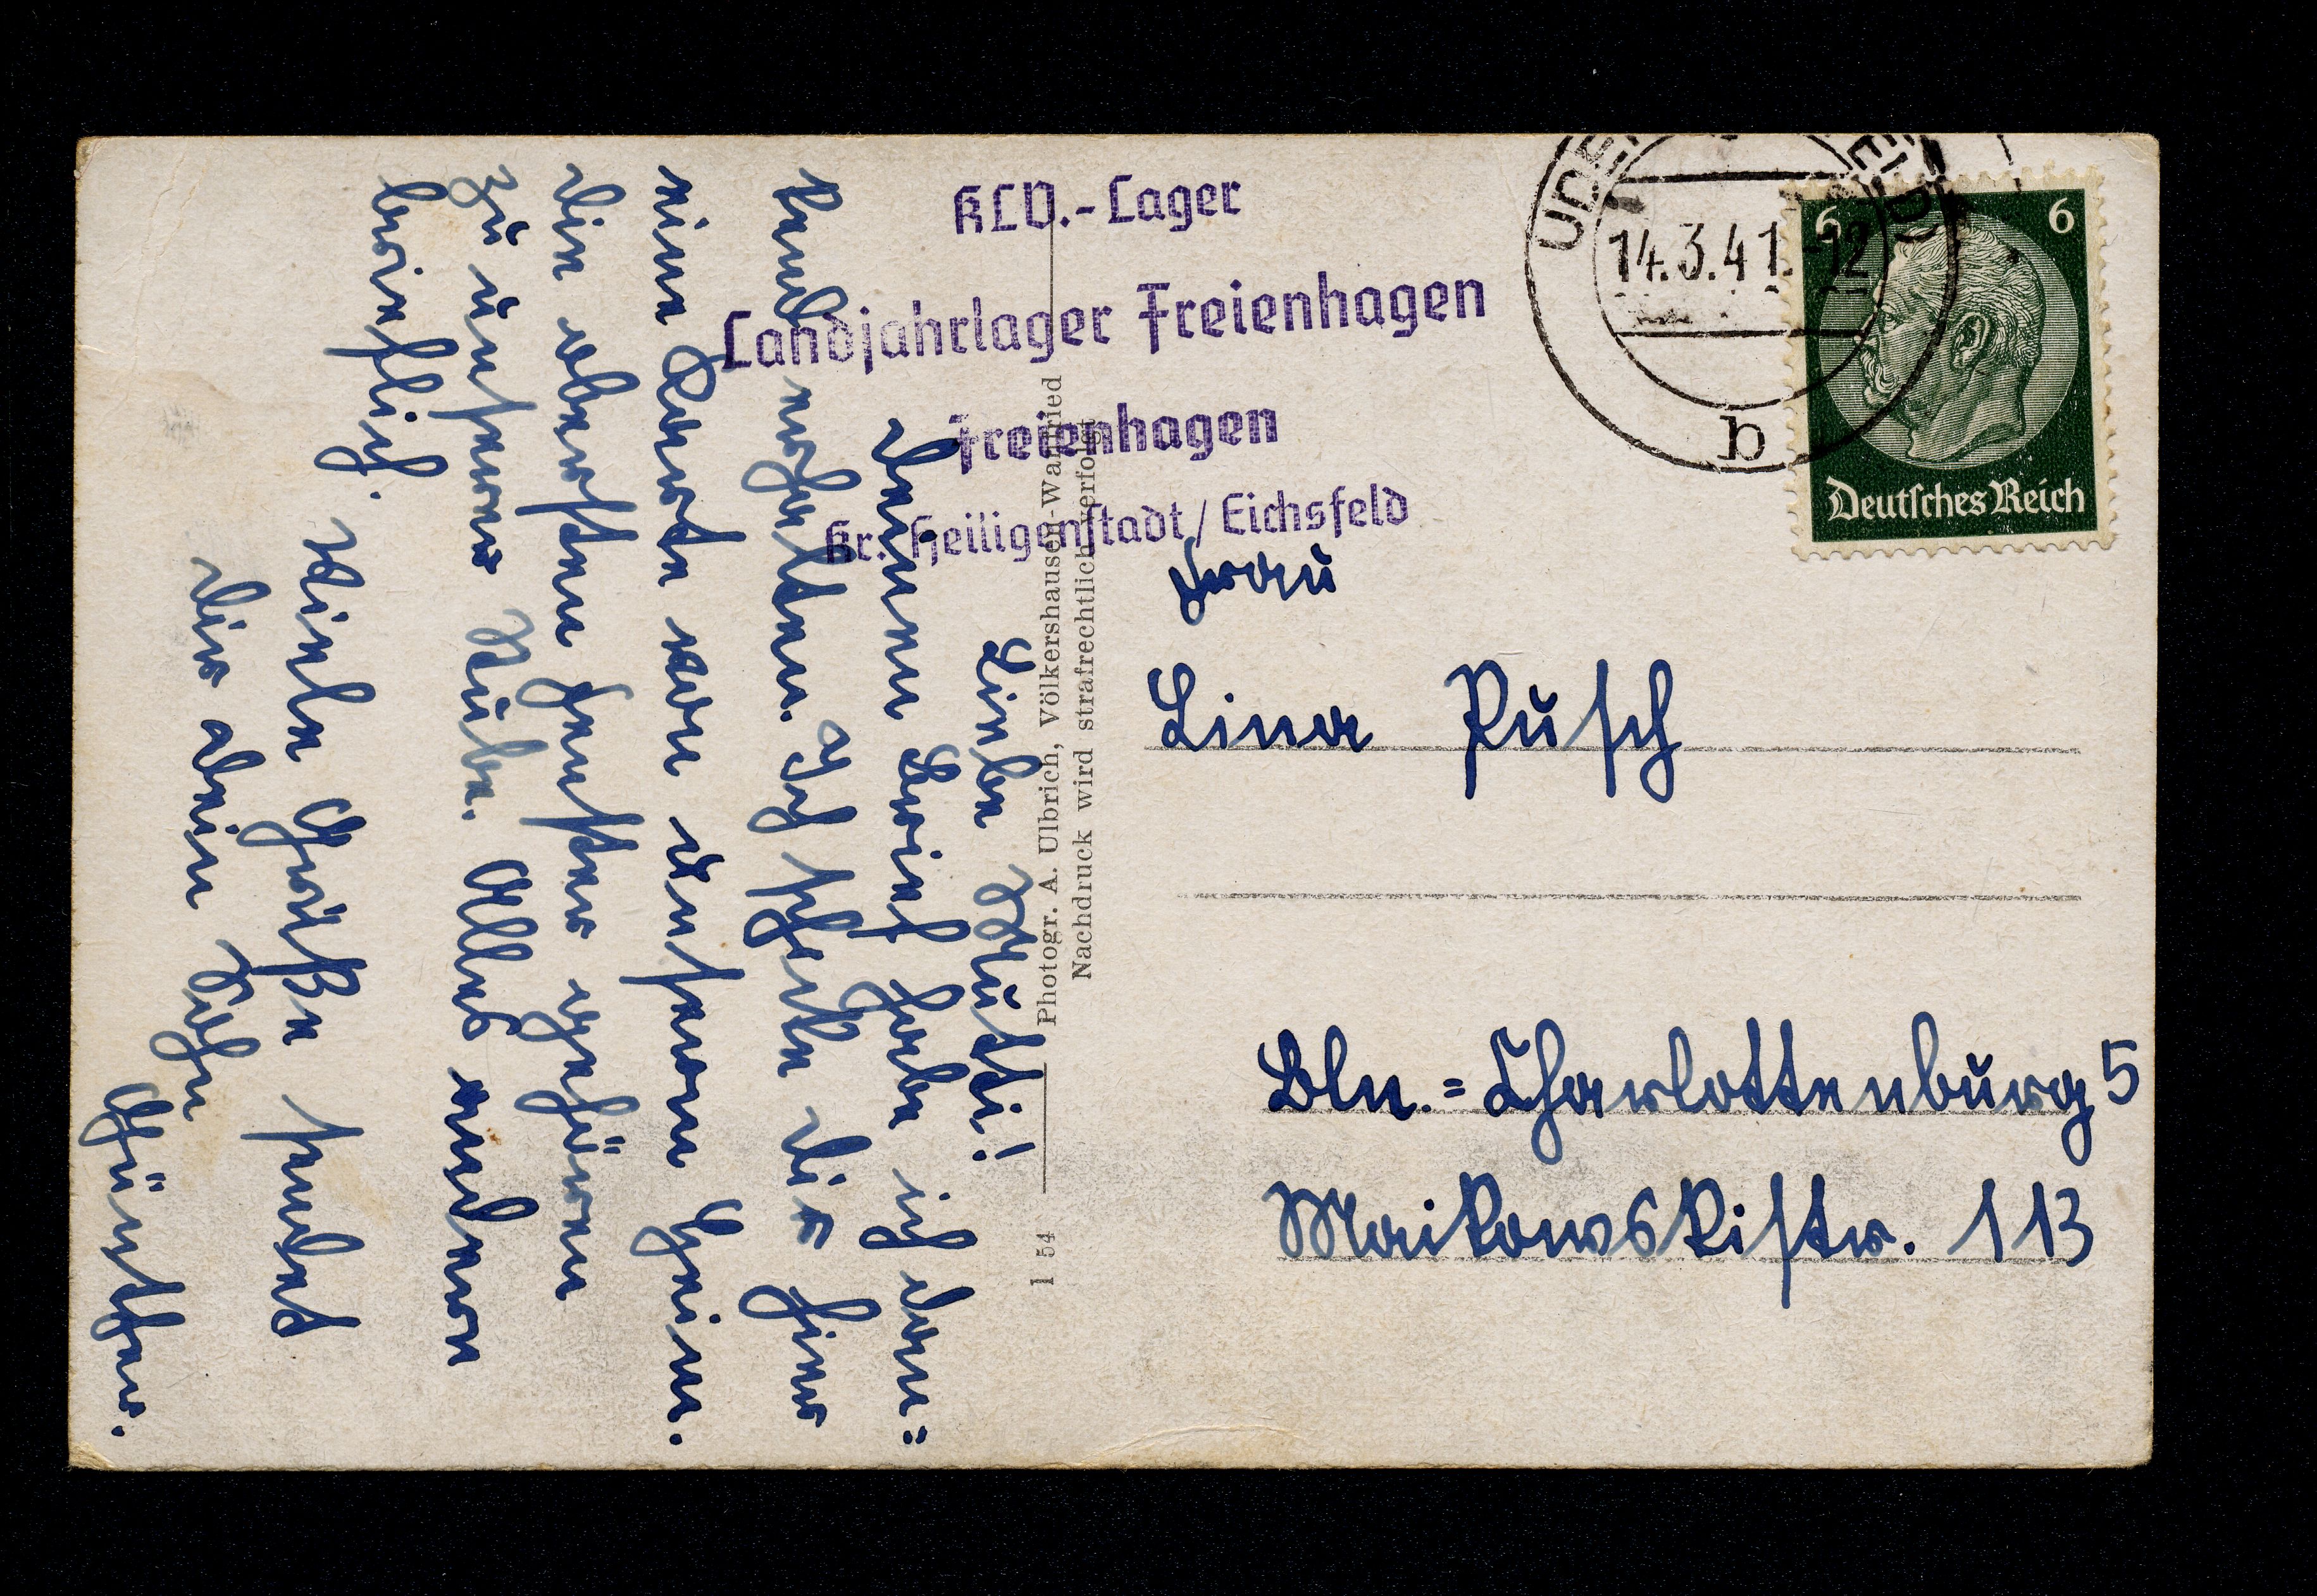 KLV.-Lager
Landjahrlager Freienhagen
Freienhagen
Kr. Heiligenstadt / Eichsfeld
UDER
EICHSFELD
14.3.41.-12
b
6 6
Deutsches Reich
Frau
Lina Rusch
Bln.=Charlottenburg 5
Maikowskistr. 113
Photogr. A. Ulbrich, Völkershausen-Wanfried
Nachdruck wird strafrechtlich verfolgt
1 54
Liebe Mutti!
Deinen Brief habe ich dan=
kend erhalten. Ich schicke dir hier
eine Karte von unserm Heim.
Die obersten Fenster gehören
zu unserer Stube. Alles andere
brieflich. Viele Grüße sendet
dir dein Sohn
Günther.